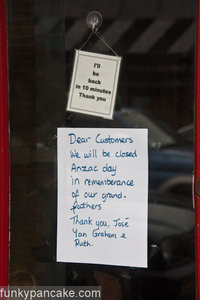 I'll
be
back
in 10 minutes
Thank you
Dear Customers
We will be closed
Anzac day
in rememberance
of our grand-
fathers
Thank you, José
Yan Graham &
Ruth.
funkypancake.com